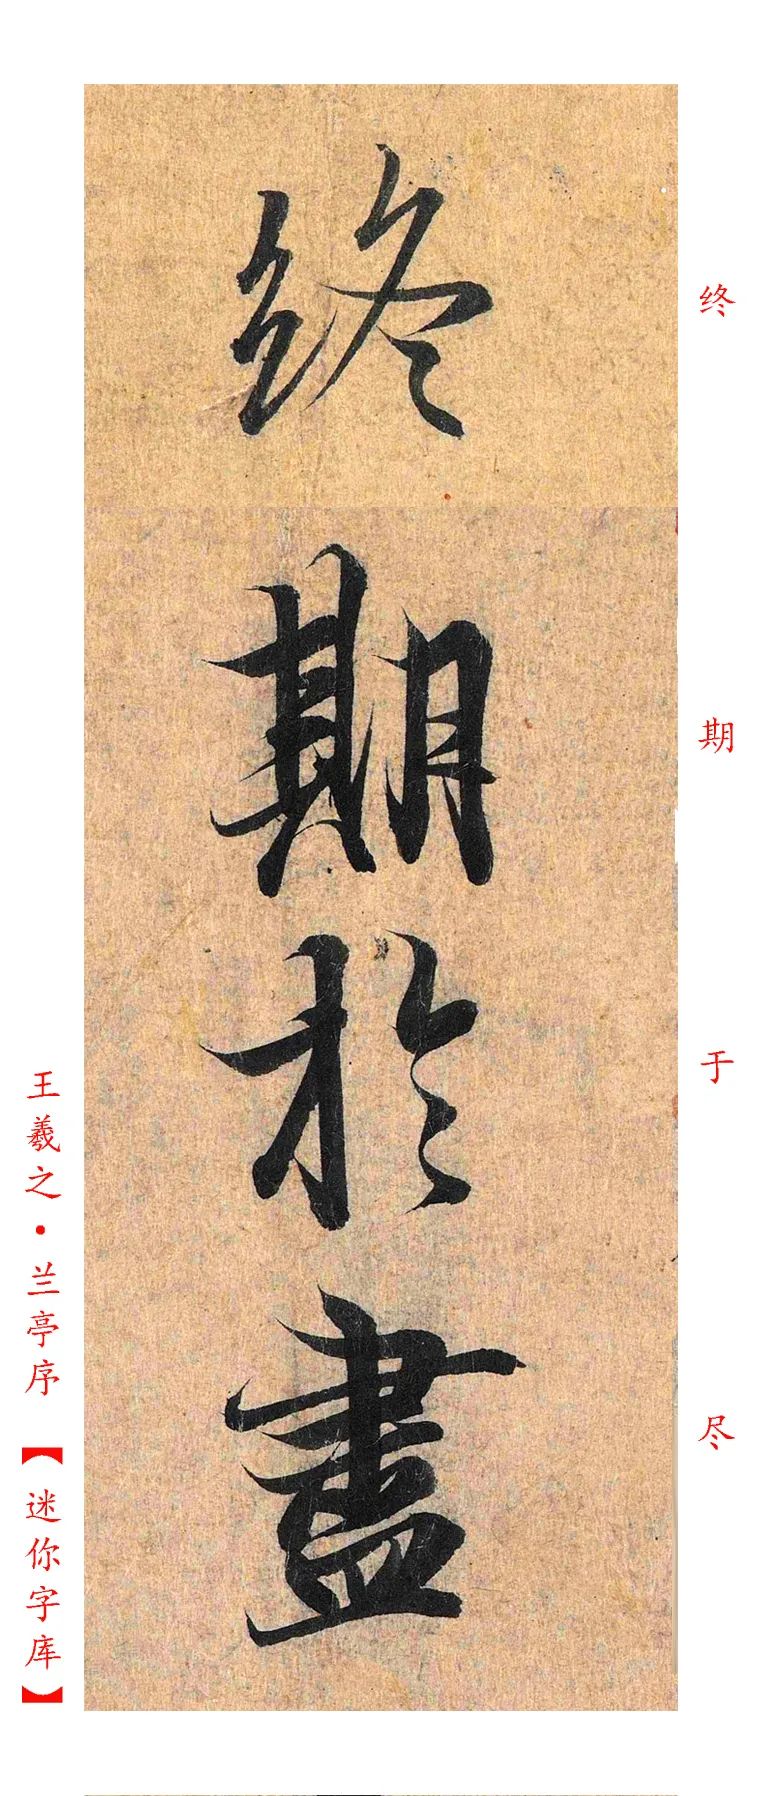 终
期
于
尽
終期於盡
王羲之·兰亭序【迷你字库】